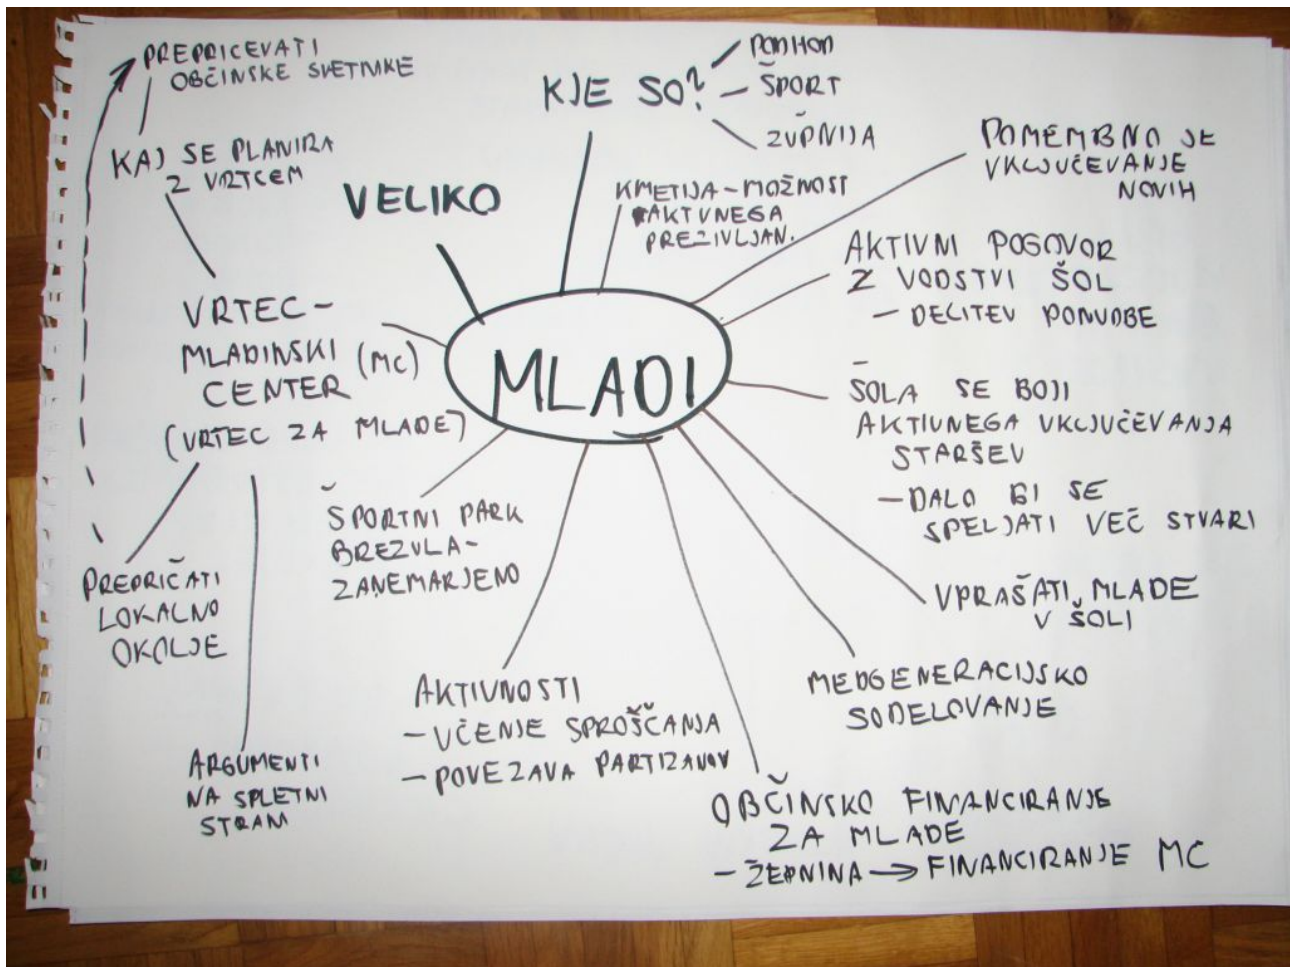 PREPRICEVATI
OBČINSKE SVETNIKE
KAJ SE PLANIRA
Z VRTCEM
VELIKO
KJE SO?
POHOD
ŠPORT
ŽUPNIJA
KMETIJA - MOŽNOST
AKTIVNEGA
PREŽIVLJAN.
POMEMBNO JE
VKLJUČEVANJE
NOVIH
AKTIVNI POGOVOR
Z VODSTVI ŠOL
- DELITEV PONUDBE
VRTEC -
MLADINSKI (MC)
CENTER
(VRTEC ZA MLADE)
MLADI
ŠOLA SE BOJI
AKTIVNEGA VKLJUČEVANJA
STARŠEV
- DALO BI SE
SPELJATI VEČ STVARI
ŠPORTNI PARK
BREZULA -
ZANEMARJENO
PREPRIČATI
LOKALNO
OKOLJE
VPRAŠATI MLADE
V ŠOLI
MEDGENERACIJSKO
SODELOVANJE
AKTIVNOSTI
- UČENJE SPROŠČANJA
- POVEZAVA PARTIZANOV
ARGUMENTI
NA SPLETNI
STRANI
OBČINSKO FINANCIRANJE
ZA MLADE
- ŽEPNINA → FINANCIRANJE MC